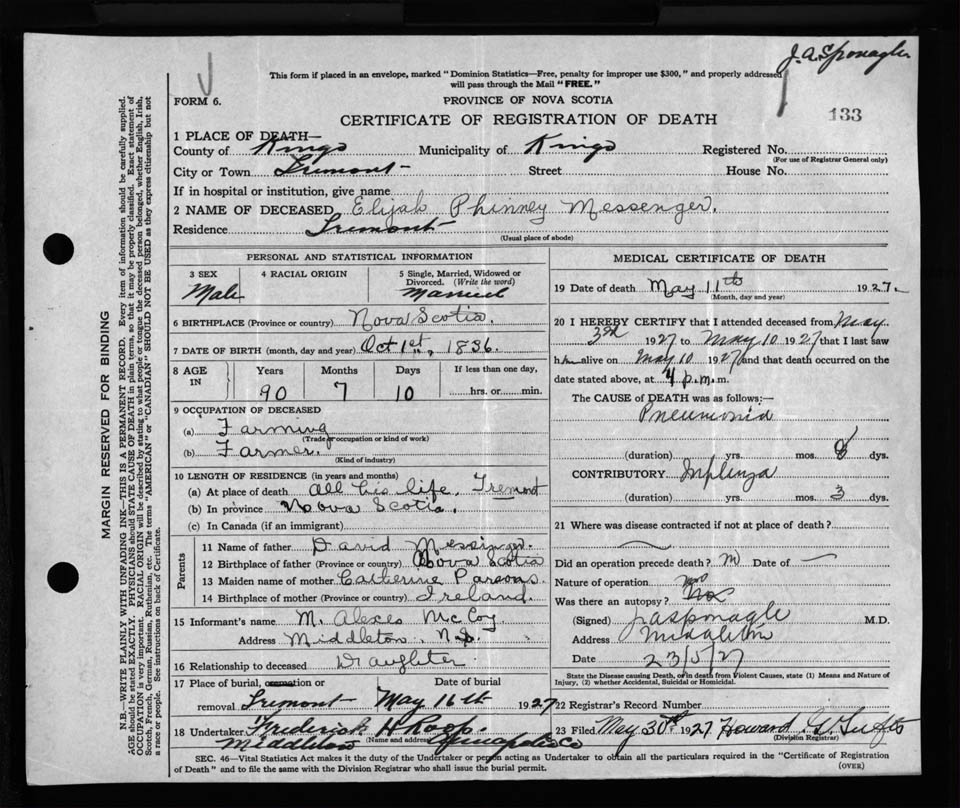 J.A. Sponagle
This form if placed in an envelope, marked "Dominion Statistics—Free, penalty for improper use $300," and properly addressed
will pass through the Mail "FREE."
FORM 6.
PROVINCE OF NOVA SCOTIA
133
CERTIFICATE OF REGISTRATION OF DEATH
1 PLACE OF DEATH—
County of Kings Municipality of Kings Registered No.
(For use of Registrar General only)
City or Town Tremont Street House No.
If in hospital or institution, give name
2 NAME OF DECEASED Elijah Phinney Messenger.
Residence Tremont
(Usual place of abode)
PERSONAL AND STATISTICAL INFORMATION
3 SEX 4 RACIAL ORIGIN 5 Single, Married, Widowed or
Divorced. (Write the word)
Male Married
6 BIRTHPLACE (Province or country) Nova Scotia.
7 DATE OF BIRTH (month, day and year) Oct 1st, 1836.
8 AGE IN Years Months Days If less than one day,
90 7 10 hrs. or min.
9 OCCUPATION OF DECEASED
(a) Farming
(Trade or occupation or kind of work)
(b) Farmer.
(Kind of industry)
10 LENGTH OF RESIDENCE (in years and months)
(a) At place of death All his life, Tremont
(b) In province Nova Scotia.
(c) In Canada (if an immigrant)
Parents
11 Name of father David Messinger.
12 Birthplace of father (Province or country) Nova Scotia
13 Maiden name of mother Catherine Parsons.
14 Birthplace of mother (Province or country) Ireland.
15 Informant's name M. McCoy
Address Middleton N.S.
16 Relationship to deceased Draughter.
17 Place of burial, cremation or Date of burial
removal Tremont May 16th 1927
18 Undertaker Frederick H Roop.
Middleton (Name and address) Annapolis Co
MEDICAL CERTIFICATE OF DEATH
19 Date of death May 11th 1927.
(Month, day and year)
20 I HEREBY CERTIFY that I attended deceased from May
3rd 1927 to May 10 1927 that I last saw
him alive on May 10 1927 and that death occurred on the
date stated above, at 4 p.m. m.
The CAUSE of DEATH was as follows:—
Pneumonia
(duration) yrs. mos. 8 dys.
CONTRIBUTORY
(duration) yrs. mos. 3 dys.
21 Where was disease contracted if not at place of death?
Did an operation precede death? Date of —
Nature of operation
Was there an autopsy? No
(Signed) J A Sponagle M.D.
Address Middleton
Date 23/5/27
State the Disease causing Death, or in death from Violent Causes, state (1) Means and Nature of
Injury, (2) whether Accidental, Suicidal or Homicidal.
22 Registrar's Record Number
23 Filed May 30th 1927 Howard G.
(Division Registrar)
SEC. 46—Vital Statistics Act makes it the duty of the Undertaker or person acting as Undertaker to obtain all the particulars required in the "Certificate of Registration
of Death" and to file the same with the Division Registrar who shall issue the burial permit.
(OVER)
MARGIN RESERVED FOR BINDING
N.B.—WRITE PLAINLY WITH UNFADING INK—THIS IS A PERMANENT RECORD. Every item of information should be carefully supplied.
AGE should be stated EXACTLY. PHYSICIANS should STATE CAUSE OF DEATH in plain terms, so that it may be properly classified. Exact statement of
OCCUPATION is very important. RACIAL ORIGIN will be described by stating to what people or tongue the deceased person belonged, whether English, Irish,
Scotch, French, German, Russian, Ruthenian, etc. The terms "AMERICAN" or "CANADIAN" SHOULD NOT BE USED as they express citizenship but not
a race or people. See instructions on back of Certificate.